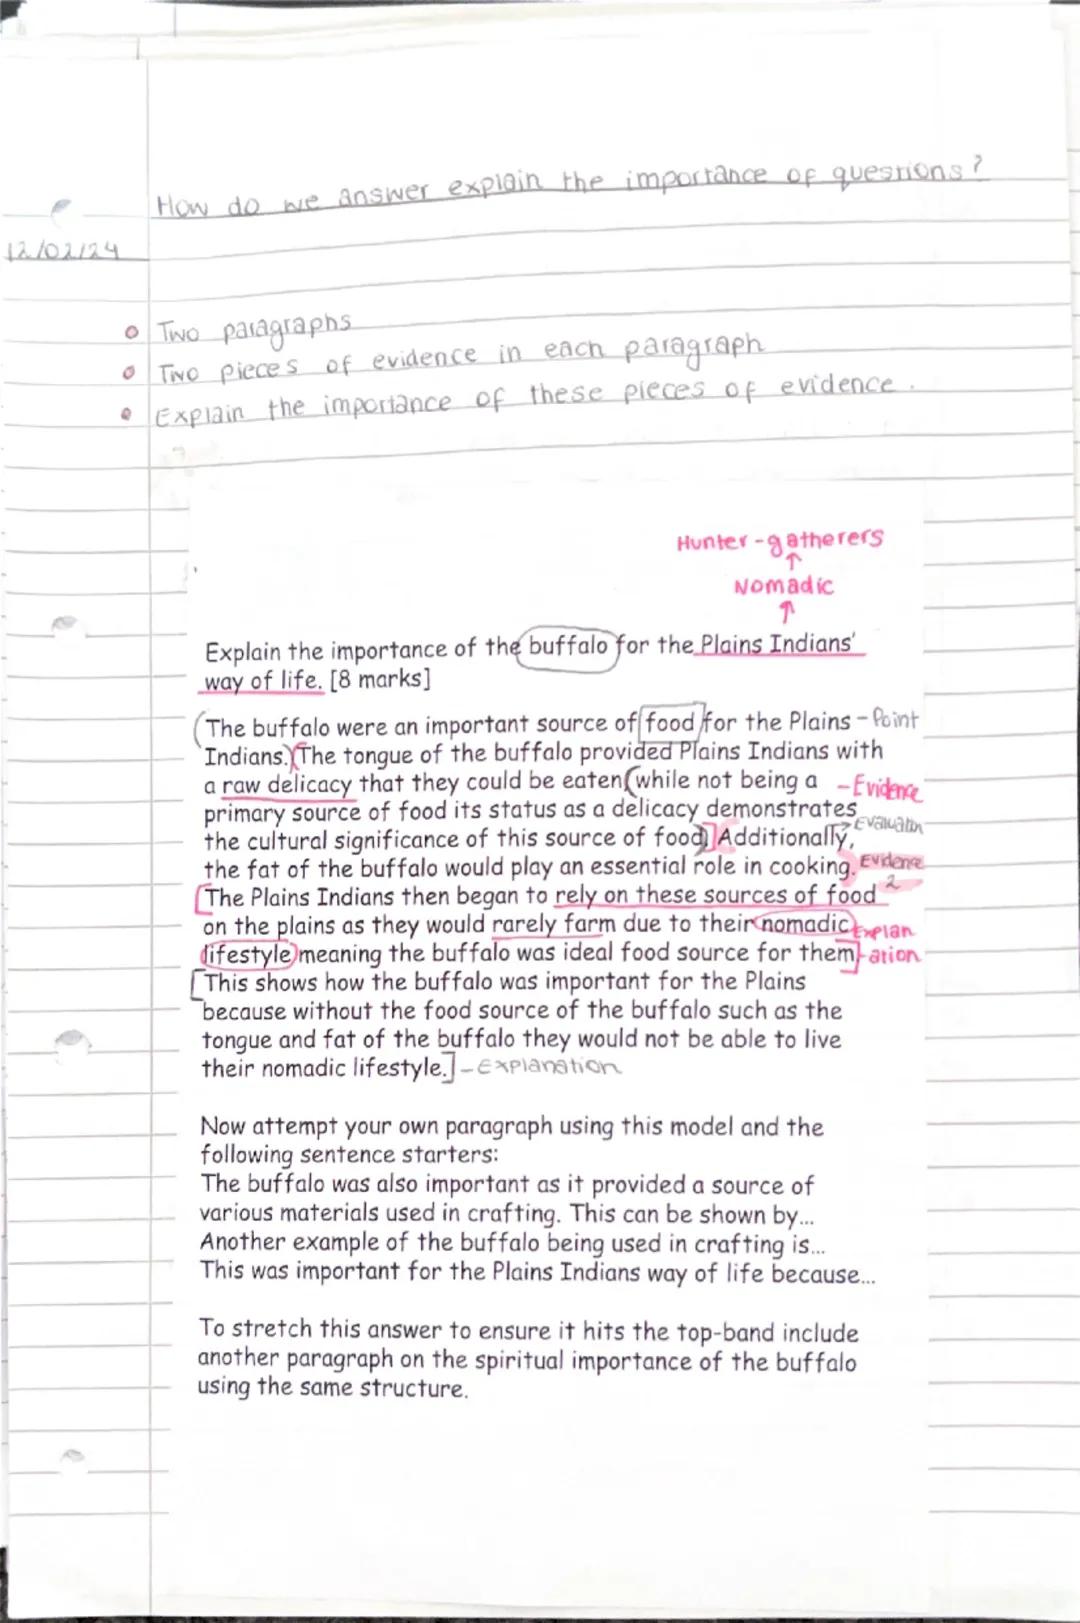 How do we answer explain the importance of questions?
12/02/24
Two paragraphs
Two pieces of evidence in each paragraph
Explain the importance of these pieces of evidence.
Hunter-gatherers
Nomadic
Explain the importance of the buffalo for the Plains Indians'
way of life. [8 marks]
(The buffalo were an important source of food for the Plains - Point
Indians.)(The tongue of the buffalo provided Plains Indians with
a raw delicacy that they could be eaten(while not being a - Evidence
primary source of food its status as a delicacy demonstrates
the cultural significance of this source of food)] Additionally, → Evaluatin
the fat of the buffalo would play an essential role in cooking. Evidence 2
[The Plains Indians then began to rely on these sources of food
on the plains as they would rarely farm due to their nomadic Explan
lifestyle) meaning the buffalo was ideal food source for them]-ation
[This shows how the buffalo was important for the Plains
because without the food source of the buffalo such as the
tongue and fat of the buffalo they would not be able to live
their nomadic lifestyle.] - Explanation
Now attempt your own paragraph using this model and the
following sentence starters:
The buffalo was also important as it provided a source of
various materials used in crafting. This can be shown by...
Another example of the buffalo being used in crafting is...
This was important for the Plains Indians way of life because...
To stretch this answer to ensure it hits the top-band include
another paragraph on the spiritual importance of the buffalo
using the same structure.